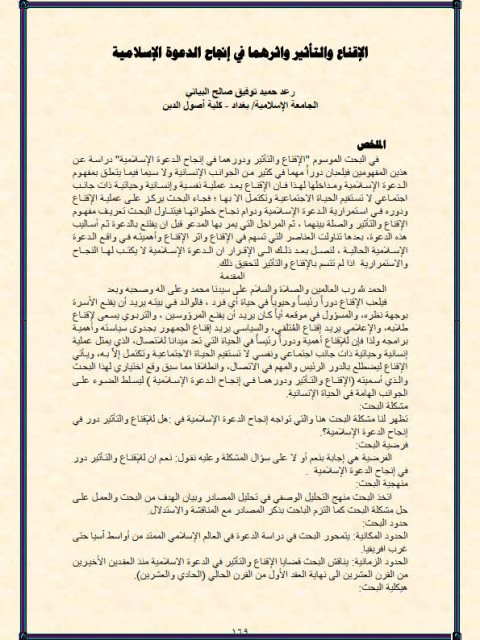 الإقناع والتأثير واثرهما في إنجاح الدعوة الإسلامية
رعد حميد توفيق صالح البياتي
الجامعة الإسلامية/ بغداد - كلية أصول الدين
الملخص
في البحث الموسوم "الإقناع والتأثير ودورهما في إنجاح الدعوة الإسلامية" دراسة عن
هذين المفهومين فيلعبان دوراً مهما في كثير من الجوانب الإنسانية ولا سيما فيما يتعلق بمفهوم
الدعوة الإسلامية ومداخلها لهذا فان الإقناع يعد عملية نفسية وإنسانية وحياتية ذات جانب
اجتماعي لا تستقيم الحياة الاجتماعية وتكتمل الا بها ؛ فجاء البحث يركز على عملية الإقناع
ودوره في استمرارية الدعوة الإسلامية ودوام نجاح خطواتها فيتناول البحث تعريف مفهوم
الإقناع والتأثير والصلة بينهما ، ثم المراحل التي يمر بها المدعو قبل ان يقتنع بالدعوة ثم أساليب
هذه الدعوة، بعدها تناولت العناصر التي تسهم في الإقناع واثر الإقناع وأهميته في واقع الدعوة
الإسلامية الحالية ، لنصل بعد ذلك الى الإقرار ان الدعوة الإسلامية لا يكتب لها النجاح
والاستمرارية اذا لم تتسم بالإقناع والتأثير لتحقيق ذلك.
المقدمة
الحمد لله رب العالمين والصلاة والسلام على سيدنا محمد وعلى اله وصحبه وبعد
فيلعب الإقناع دوراً رئيساً وحيوياً في حياة أي فرد ، فالوالد في بيته يريد أن يقنع الأسرة
بوجهة نظره، والمسؤول في موقعه أياً كان يريد أن يقنع المرؤوسين ، والتربوي يسعى لإقناع
طلابه، والإعلامي يريد إقناع المُتلقي، والسياسي يريد إقناع الجمهور بجدوى سياسته وأهمية
برامجه ولذا فإن للإقناع أهمية ودوراً رئيساً في الحياة التي تعد ميدانا للاتصال، الذي يمثل عملية
إنسانية وحياتية ذات جانب اجتماعي ونفسي لا تستقيم الحياة الاجتماعية وتكتمل إلاّ به، ويأتي
الإقناع ليضطلع بالدور الرئيس والمهم في الاتصال، وانطلاقا مما سبق وقع اختياري لهذا البحث
والذي أسميته (الإقناع والتأثير ودورهما في إنجاح الدعوة الإسلامية ) ليسلط الضوء على
الجوانب الهامة في الحياة الإنسانية.
مشكلة البحث:
تظهر لنا مشكلة البحث هنا والتي تواجه إنجاح الدعوة الإسلامية في :هل للإقناع والتأثير دور في
إنجاح الدعوة الإسلامية؟.
فرضية البحث:
الفرضية هي إجابة بنعم أو لا على سؤال المشكلة وعليه نقول: نعم ان للإقناع والتأثير دور
في إنجاح الدعوة الإسلامية .
منهجية البحث:
اتخذ البحث منهج التحليل الوصفي في تحليل المصادر وبيان الهدف من البحث والعمل على
حل مشكلة البحث كما التزم الباحث بذكر المصادر مع المناقشة والاستدلال.
حدود البحث:
الحدود المكانية: يتمحور البحث في دراسة الدعوة في العالم الإسلامي الممتد من أواسط آسيا حتى
غرب افريقيا.
الحدود الزمانية: يناقش البحث قضايا الإقناع والتأثير في الدعوة الاسلامية منذ العقدين الأخيرين
من القرن العشرين الى نهاية العقد الأول من القرن الحالي (الحادي والعشرين).
هيكلية البحث:
١٦٩